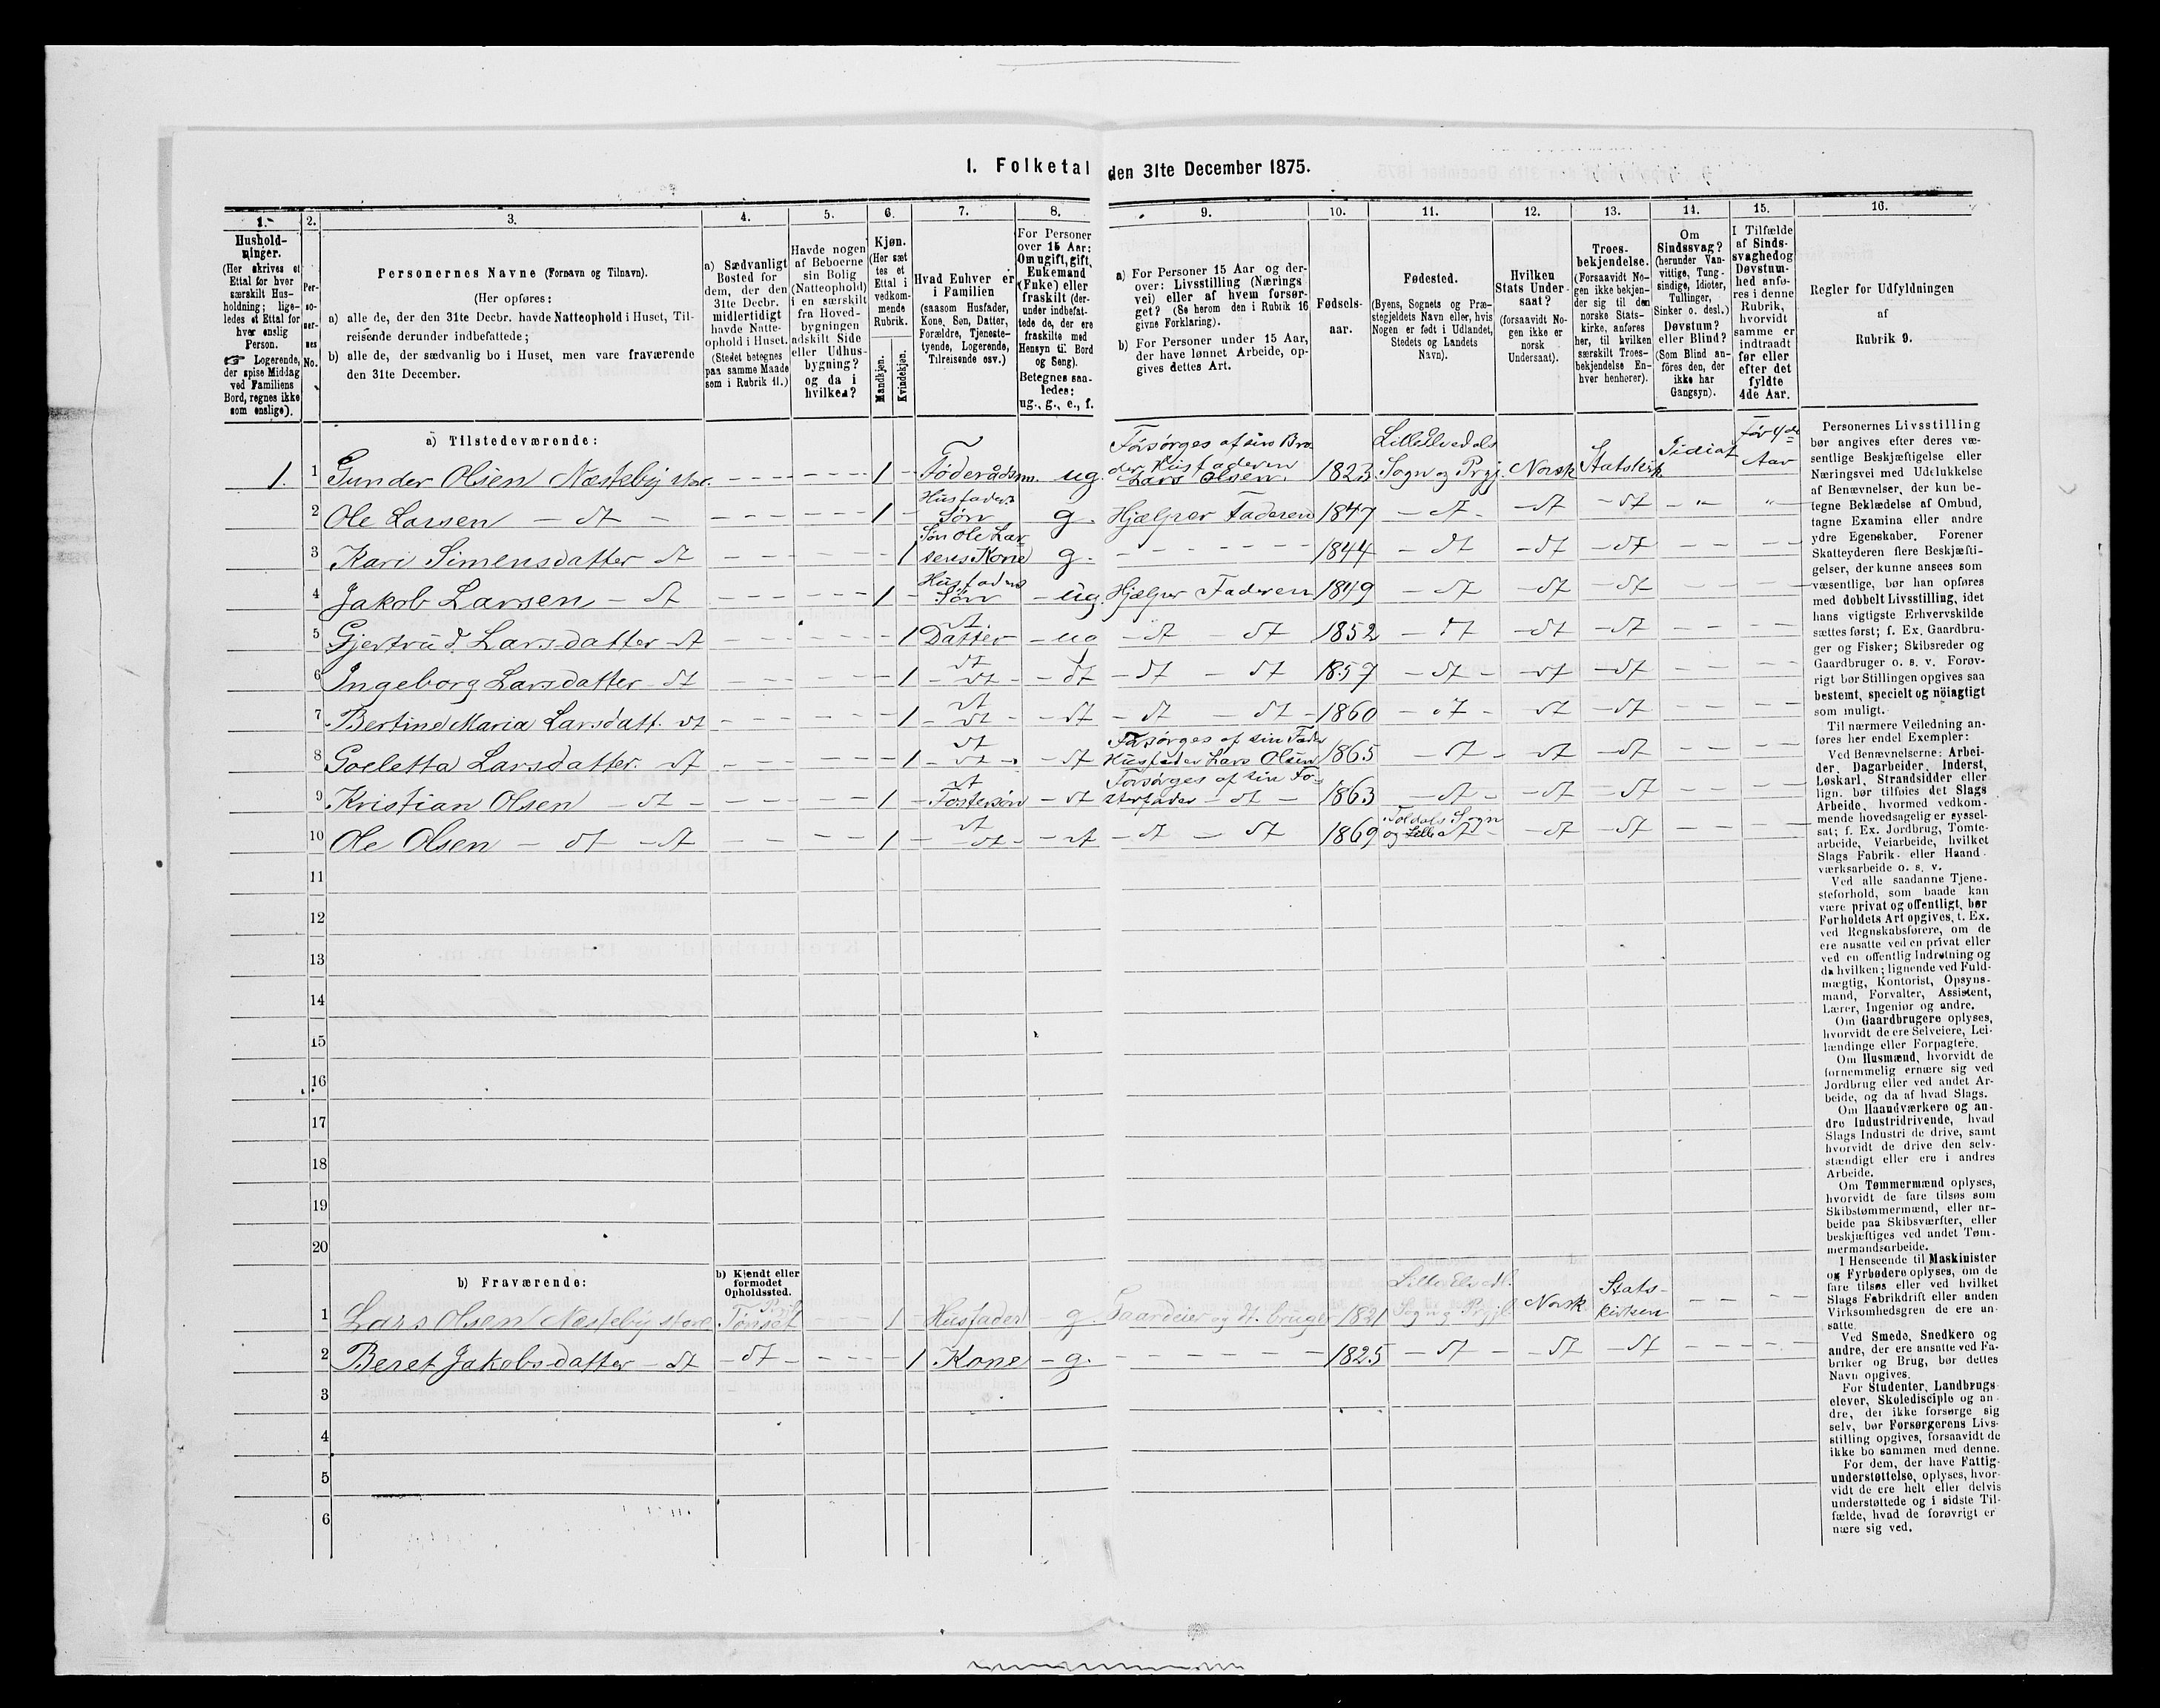 1. Folketal den 31te December 1875.
1. 2. 3. 4. 5. 6. 7. 8. 9. 10. 11. 12. 13. 14. 15. 16.
Hushold-
ninger.
(Her skrives et
Ettal for hver
særskilt Hus-
holdning; lige-
ledes et Ettal for
hver enslig
Person.
☞ Logerende,
der spise Middag
ved Familiens
Bord, regnes ikke
som enslige).
Per-
so-
ner-
nes
No.
Personernes Navne (Fornavn og Tilnavn).
(Her opføres:
a) alle de, der den 31te Decbr. havde Natteophold i Huset, Til-
reisende derunder indbefattede;
b) alle de, der sædvanlig bo i Huset, men vare fraværende
den 31te December.
a) Sædvanligt
Bosted for
dem, der den
31te Decbr.
midlertidigt
havde Natte-
ophold i Huset.
(Stedet betegnes
paa samme Maade
som i Rubrik 11.)
Havde nogen
af Beboerne
sin Bolig
(Natteophold)
i en særskilt
fra Hoved-
bygningen
adskilt Side
eller Udhus-
bygning?
og da i
hvilken?
Kjøn.
(Her sæt
tes et
Ettal i
vedkom-
mende
Rubrik.
Mandkjøn.
Kvindekjøn.
Hvad Enhver er
i Familien
(saasom Husfader,
Kone, Søn, Datter,
Forældre, Tjeneste-
tyende, Logerende,
Tilreisende osv.)
For Personer
over 15 Aar:
Om ugift, gift,
Enkemand
(Enke) eller
fraskilt (der-
under indbefat-
tede de, der ere
fraskilte med
Hensyn til Bord
og Seng).
Betegnes saa-
ledes:
ug., g., e., f.
a) For Personer 15 Aar og der-
over: Livsstilling (Nærings
vei) eller af hvem forsør-
get? (Se herom den i Rubrik 16
givne Forklaring).
b) For Personer under 15 Aar,
der have lønnet Arbeide, op-
gives dettes Art.
Fødsels-
aar.
Fødested.
(Byens, Sognets og Præ-
stegjeldets Navn eller, hvis
Nogen er født i Udlandet,
Stedets og Landets
Navn).
Hvilken
Stats Under-
saat?
(forsaavidt No-
gen ikke er
norsk
Undersaat).
Troes-
bekjendelse.
(Forsaavidt No-
gen ikke bekjen-
der sig til den
norske Stats-
kirke, anføres
her, til hvilken
særskilt Troes-
bekjendelse En-
hver henhører).
Om
Sindssvag?
(herunder Van-
vittige, Tung-
sindige, Idioter,
Tullinger,
Sinker o. desl.)
Døvstum?
eller Blind?
(Som Blind an-
føres den, der
ikke har
Gangsyn).
I Tilfælde
af Sinds-
svaghed og
Døvstum-
hed anfø-
res i denne
Rubrik,
hvorvidt
samme er
indtraadt
før eller
efter det
fyldte
4de Aar.
Regler for Udfyldningen
af
Rubrik 9.
a) Tilstedeværende:
1. 1 Gunder Olsen Næsteby store. 1 Føderådsm. ug. Forsørges af sin Broder Husfaderen Lars Olsen. 1823 LilleElvedals Sogn og Prgj. Norsk Statskirk Idiot før 4de Aar
2 Ole Larsen - dt - 1 Husfaders Søn g. Hjælper Faderen 1847 - dt - - dt - dt - " - "
3 Kari Simensdatter dt 1 Søn Ole Larsens Kone g. 1844 - dt - dt - dt
4 Jakob Larsen - dt 1 Husfaders Søn - ug. Hjælper Faderen 1849 - dt - dt - dt
5 Gjertrud Larsdatter dt 1 dt. Datter - ug - dt - dt 1852 - dt - dt - dt
6 Ingeborg Larsdatter - dt 1 dt - dt - - dt - dt - dt 1857 - dt - - dt - dt
7 Bertine Maria Larsdatt. dt 1 dt - dt - - dt - dt - dt - 1860 - dt - dt - dt
8 Goeletta Larsdatter. dt 1 dt - dt - - dt Forsørges af sin Fader Husfader Lars Olsen 1865 - dt - - dt - dt
9 Kristian Olsen - dt - 1 dt - Fostersøn - dt Forsørges af sin Fosterfader - dt - 1863 - dt - - dt - dt
10 Ole Olsen - dt - dt 1 dt - dt - - dt - dt - dt 1869 Foldals Sogn og Lille dt - - dt - dt
11
12
13
14
15
16
17
18
19
20
b) Fraværende:
b) Kjendt eller
formodet
Opholdssted.
1 Lars Olsen Næsteby store Tønset Prgj. 1 Husfader g Gaardeier og dt. bruger 1821 LilleElvedl. Sogn og Prgjl. Norsk Statskirken
2 Beret Jakobsdatter - dt - dt - 1 Kone - g. 1825 - dt - - dt - dt
3
4
5
6
Personernes Livsstilling
bør angives efter deres væ-
sentlige Beskjæftigelse eller
Næringsvei med Udelukkelse
af Benævnelser, der kun be-
tegne Beklædelse af Ombud,
tagne Examina eller andre
ydre Egenskaber. Forener
Skatteyderen flere Beskjæfti-
gelser, der kunne ansees som
væsentlige, bør han opføres
med dobbelt Livsstilling, idet
hans vigtigste Erhvervskilde
sættes først; f. Ex. Gaardbru-
ger og Fisker; Skibsreder og
Gaardbruger o. s. v. Forøv-
rigt bør Stillingen opgives saa
bestemt, specielt og nöiagtigt
som muligt.
Til nærmere Veiledning an-
føres her endel Exempler:
Ved Benævnelserne: Arbei-
der, Dagarbeider, Inderst,
Løskarl, Strandsidder eller
lign. bør tilføies det Slags
Arbeide, hvormed vedkom-
mende hovedsagelig er syssel-
sat; f. Ex. Jordbrug, Tomte-
arbeide, Veiarbeide, hvilket
Slags Fabrik- eller Haand-
værksarbeide o. s. v.
Ved alle saadanne Tjene-
steforhold, som baade kan
være privat og offentligt, bør
Forholdets Art opgives, t. Ex.
ved Regnskabsførere, om de
ere ansatte ved en privat eller
ved en offentlig Indretning og
da hvilken; lignende ved Fuld-
mægtig, Kontorist, Opsyns-
mand, Forvalter, Assistent,
Lærer, Ingeniør og andre.
Om Gaardbrugere oplyses,
hvorvidt de ere Selveiere, Lei-
lændinge eller Forpagtere.
Om Husmænd, hvorvidt de
fornemmelig ernære sig ved
Jordbrug eller ved andet Ar-
beide, og da af hvad Slags.
Om Haandværkere og an-
dre Industridrivende, hvad
Slags Industri de drive, samt
hvorvidt de drive den selv-
stændigt eller ere i andres
Arbeide.
Om Tømmermænd oplyses,
hvorvidt de fare tilsøs som
Skibstømmermænd, eller ar-
beide paa Skibsværfter, eller
beskjæftiges ved andet Tøm-
mermandsarbeide.
I Henseende til Maskinister
og Fyrbødere oplyses, om de
fare tilsøs eller ved hvilket
Slags Fabrikdrift eller anden
Virksomhedsgren de ere an-
satte.
Ved Smede, Snedkere og
andre, der ere ansatte ved Fa-
briker og Brug, bør dettes
Navn opgives.
For Studenter, Landbrugs-
elever, Skoledisciple og an-
dre, der ikke forsørge sig
selv, bør Forsørgerens Livs-
stilling opgives, forsaavidt de
ikke bo sammen med denne.
For dem, der have Fattig-
understøttelse, oplyses, hvor-
vidt de ere helt eller delvis
understøttede og i sidste Til-
fælde, hvad de forøvrigt er
nære sig ved.